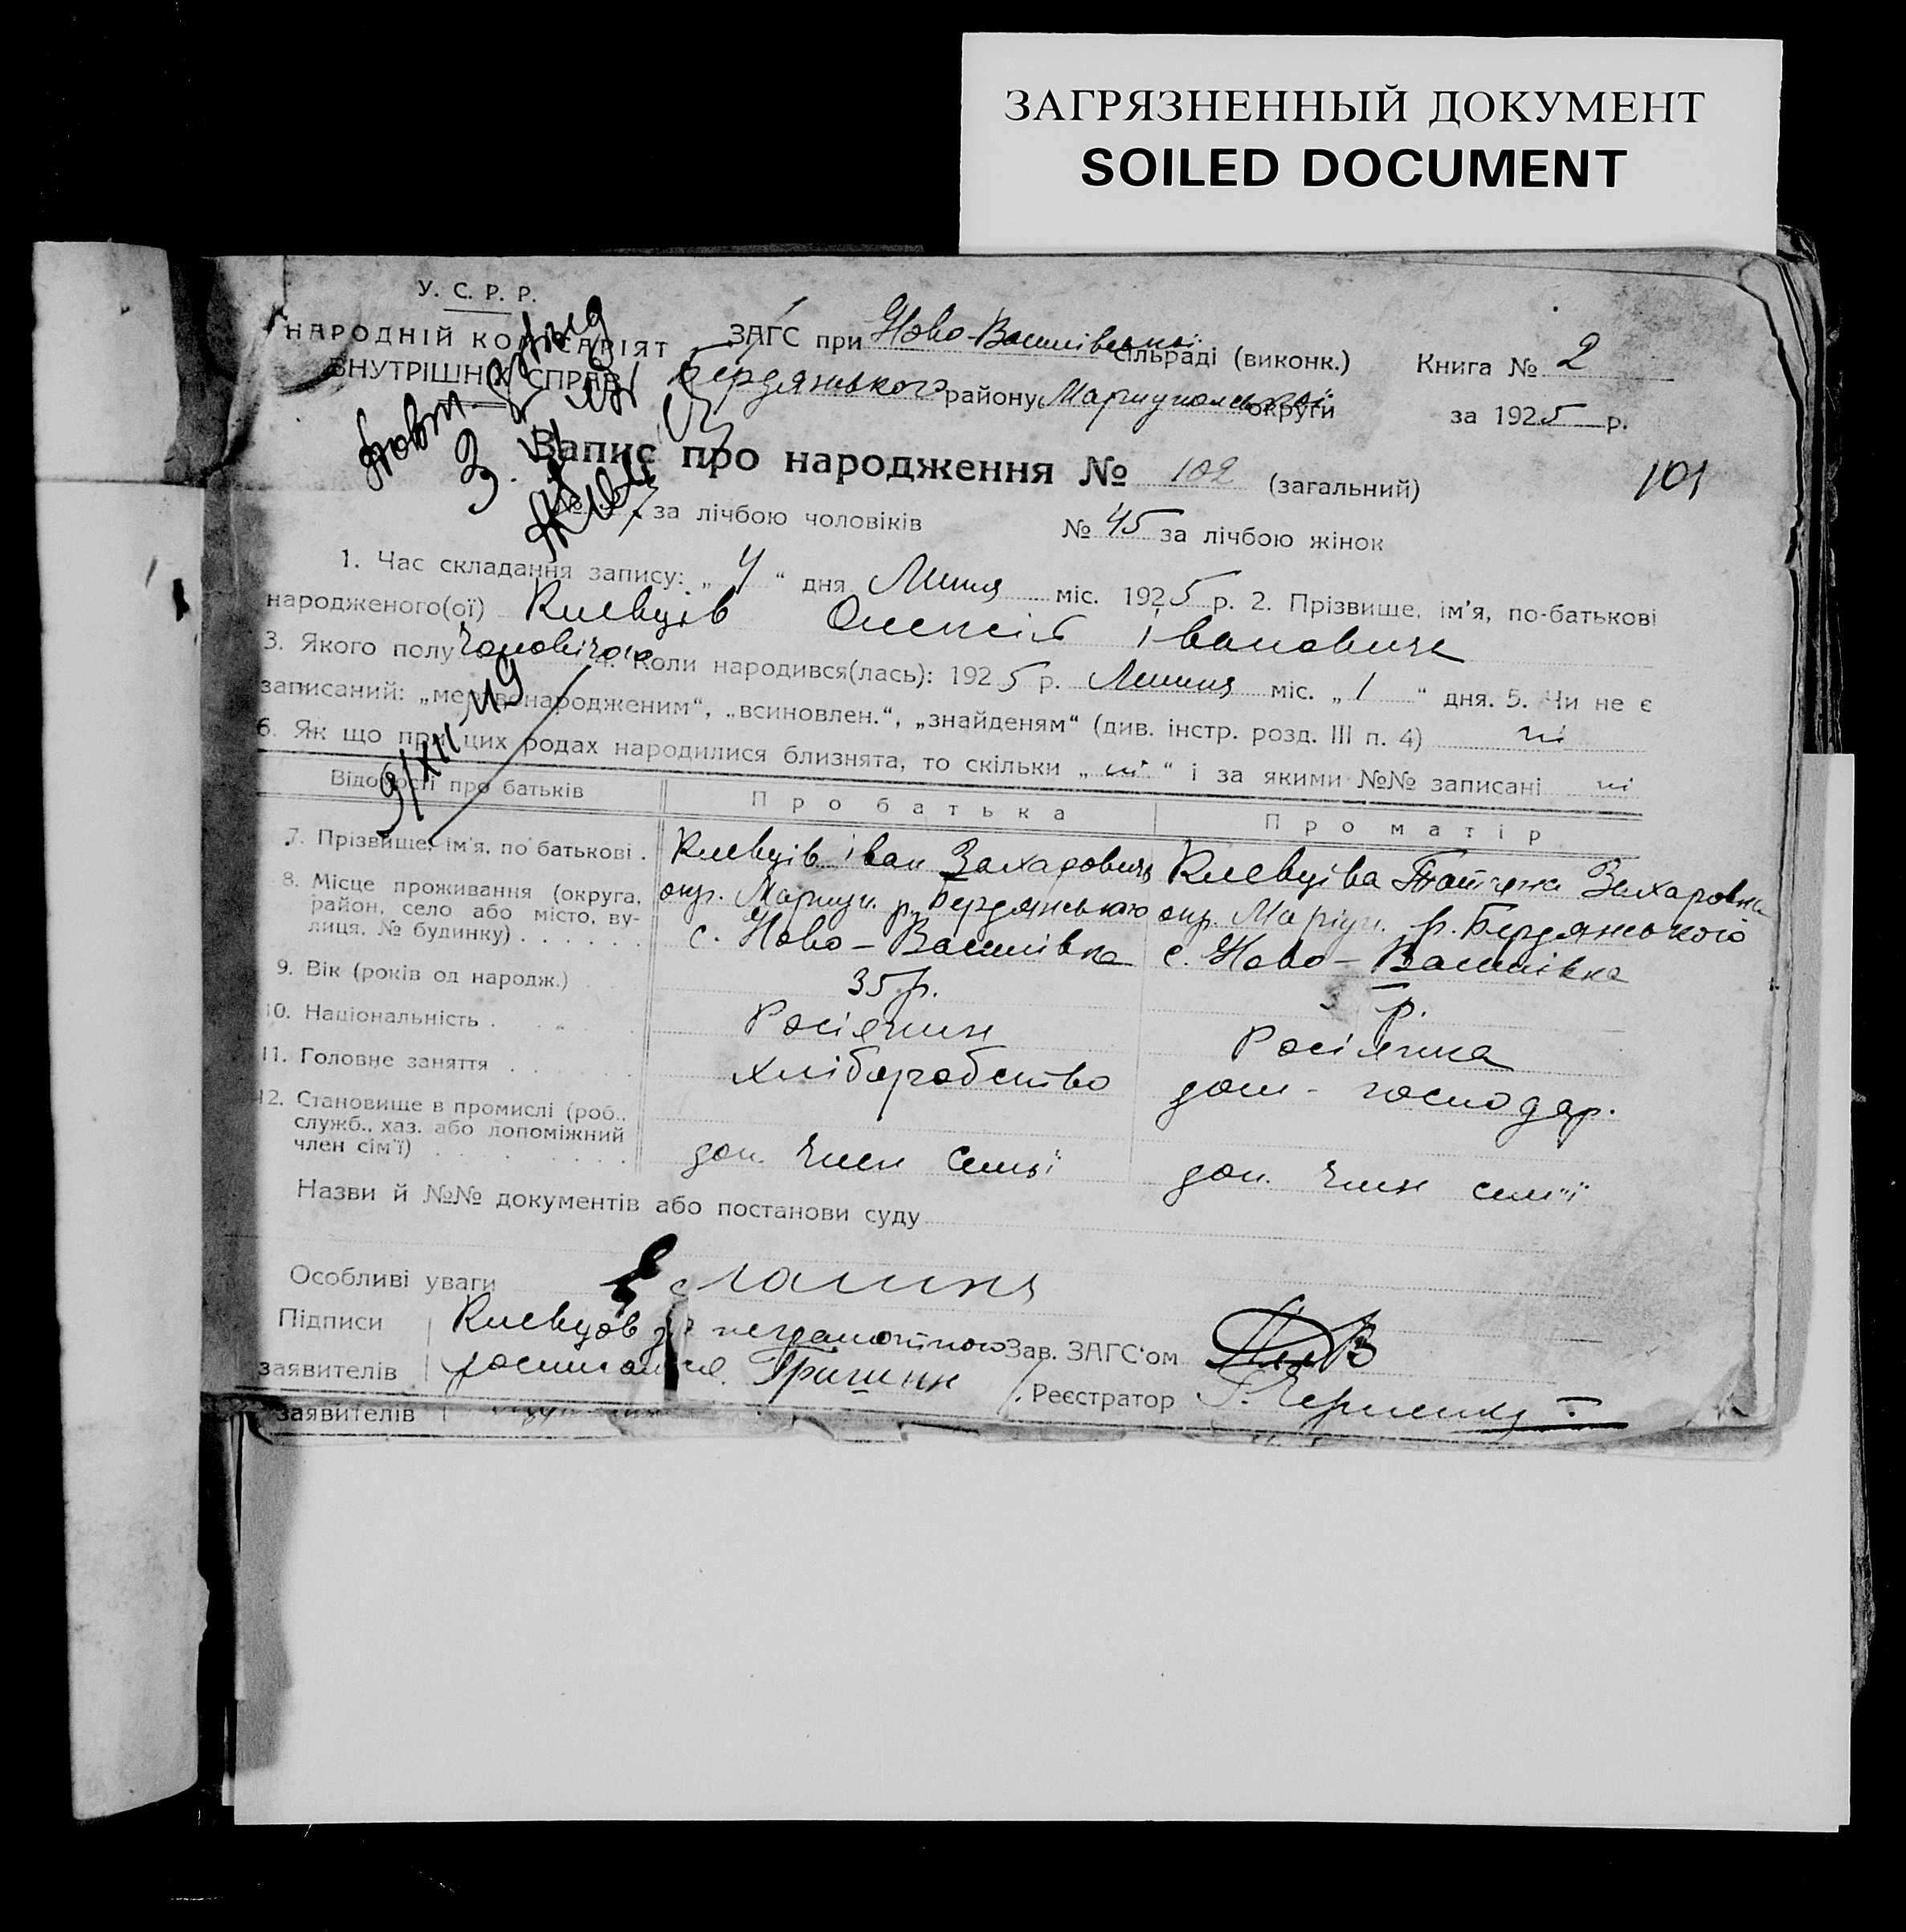 ЗАГРЯЗНЕННЫЙ ДОКУМЕНТ
SOILED DOCUMENT
У. С. Р. Р.
НАРОДНІЙ КОМІСАРІЯТ
ВНУТРІШНІХ СПРАВ
ЗАГС при Ново-Василівській сільраді (виконк.)
Бердянського району Маріупольської округи
Книга № 2
за 1925 р.
Запис про народження № 102 (загальний)
101
№ 57 за лічбою чоловіків № 45 за лічбою жінок
1. Час складання запису: „ 4 “ дня Липця міс. 1925 р. 2. Прізвище, ім’я, по-батькові
народженого(ої) Клевців Олексій Івановичь
3. Якого полу Чоловічого 4. Коли народився(лась): 1925 р. Липця міс. „ 1 “ дня. 5. Чи не є
записаний: „мертвонародженим“, „всиновлен.“, „знайденям“ (див. інстр. розд. III п. 4) ні
6. Як що при цих родах народилися близнята, то скільки „ ні “ і за якими №№ записані ні
9/XII 49
Відомости про батьків Про батька Про матір
7. Прізвище, ім’я, по батькові . Клевців Іван Захаровичь Клевціва Татяна Захаровна
8. Місце проживання (округа, район, село або місто, вулиця, № будинку) . . . . . .
окр. Маріуп. р. Бердянського с. Ново-Василівка
окр. Маріуп. р. Бердянського с. Ново-Василівка
9. Вік (років од народж.) 35 р. р.
10. Національність . Росіянин Росіянка
11. Головне заняття Хліборобство дом- господар.
12. Становище в промислі (роб., служб., хаз. або допоміжний член сім’ї)
доп. член семьї доп. член сем’ї
Назви й №№ документів або постанови суду
Особливі уваги
Підписи Клевцов за неграмотного Зав. ЗАГС’ом
заявителів росписался Гришин Реєстратор
заявителів